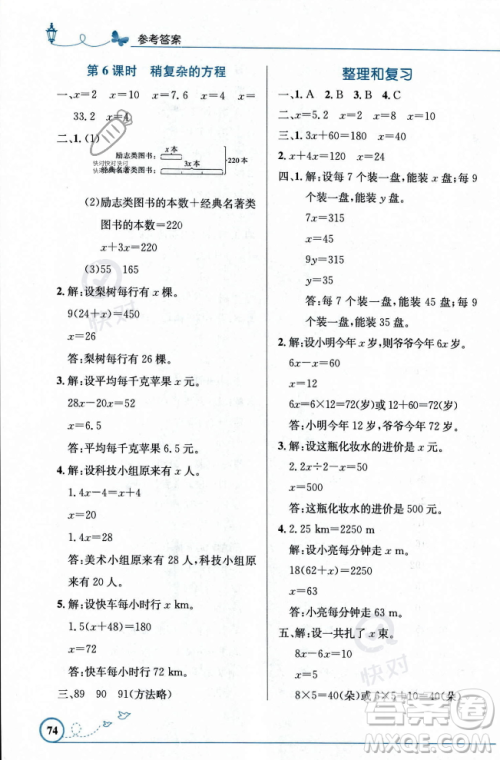 参考答案
第6课时 稍复杂的方程
一、x=2 x=10 x=7.6 x=4 x=
33.2 x=4
二、1.(1)
x本
励志类图书:
3x本
220本
经典名著类图书:
(2)励志类图书的本数+经典名著类
图书的本数=220
x+3x=220
(3)55 165
2.解:设梨树每行有x棵。
9(24+x)=450
x=26
答:梨树每行有26棵。
3.解:设平均每千克苹果x元。
28x-20x=52
x=6.5
答:平均每千克苹果6.5元。
4.解:设科技小组原来有x名。
1.4x-4=x+4
x=20
1.4x=28
答:美术小组原来有28名,科技小组原
来有20人。
5.解:设快车每小时行x km。
x=72
答:快车每小时行72 km。
三、89 90 91(方法略)
74
整理和复习
一、1.A 2.B 3.B 4.C
二、x=5.2 x=2 x=8 x=2
三、1.3x+60=180 x=40
2.x+4x=120 x=24
四、1.解:设每7个装一盘,装x盘;每9
个装一盘,能装y盘。
7x=315
x=45
9y=315
y=35
答:每7个装一盘,能装45盘;每9
个装一盘,能装35盘。
2.解:设小明今年x岁,则爷爷今年6x岁。
6x-x=60
x=12
6x=6×12=72(岁)
答:小明今年12岁,爷爷今年72岁。
3.解:设这瓶化妆水的进价是x元。
1.2x÷2-x=50
答:这瓶化妆水的进价是500元。
4.2.25 km=2250 m
解:设小亮每分钟走x m。
18(62+x)=2250
x=63
答:小亮每分钟走63 m。
五、解:设一共扎了x束。
8x-6x=10
x=5
8×5=40(朵)或6×5+10=40(朵)
快对
快对
答案圈
MXQE.COM